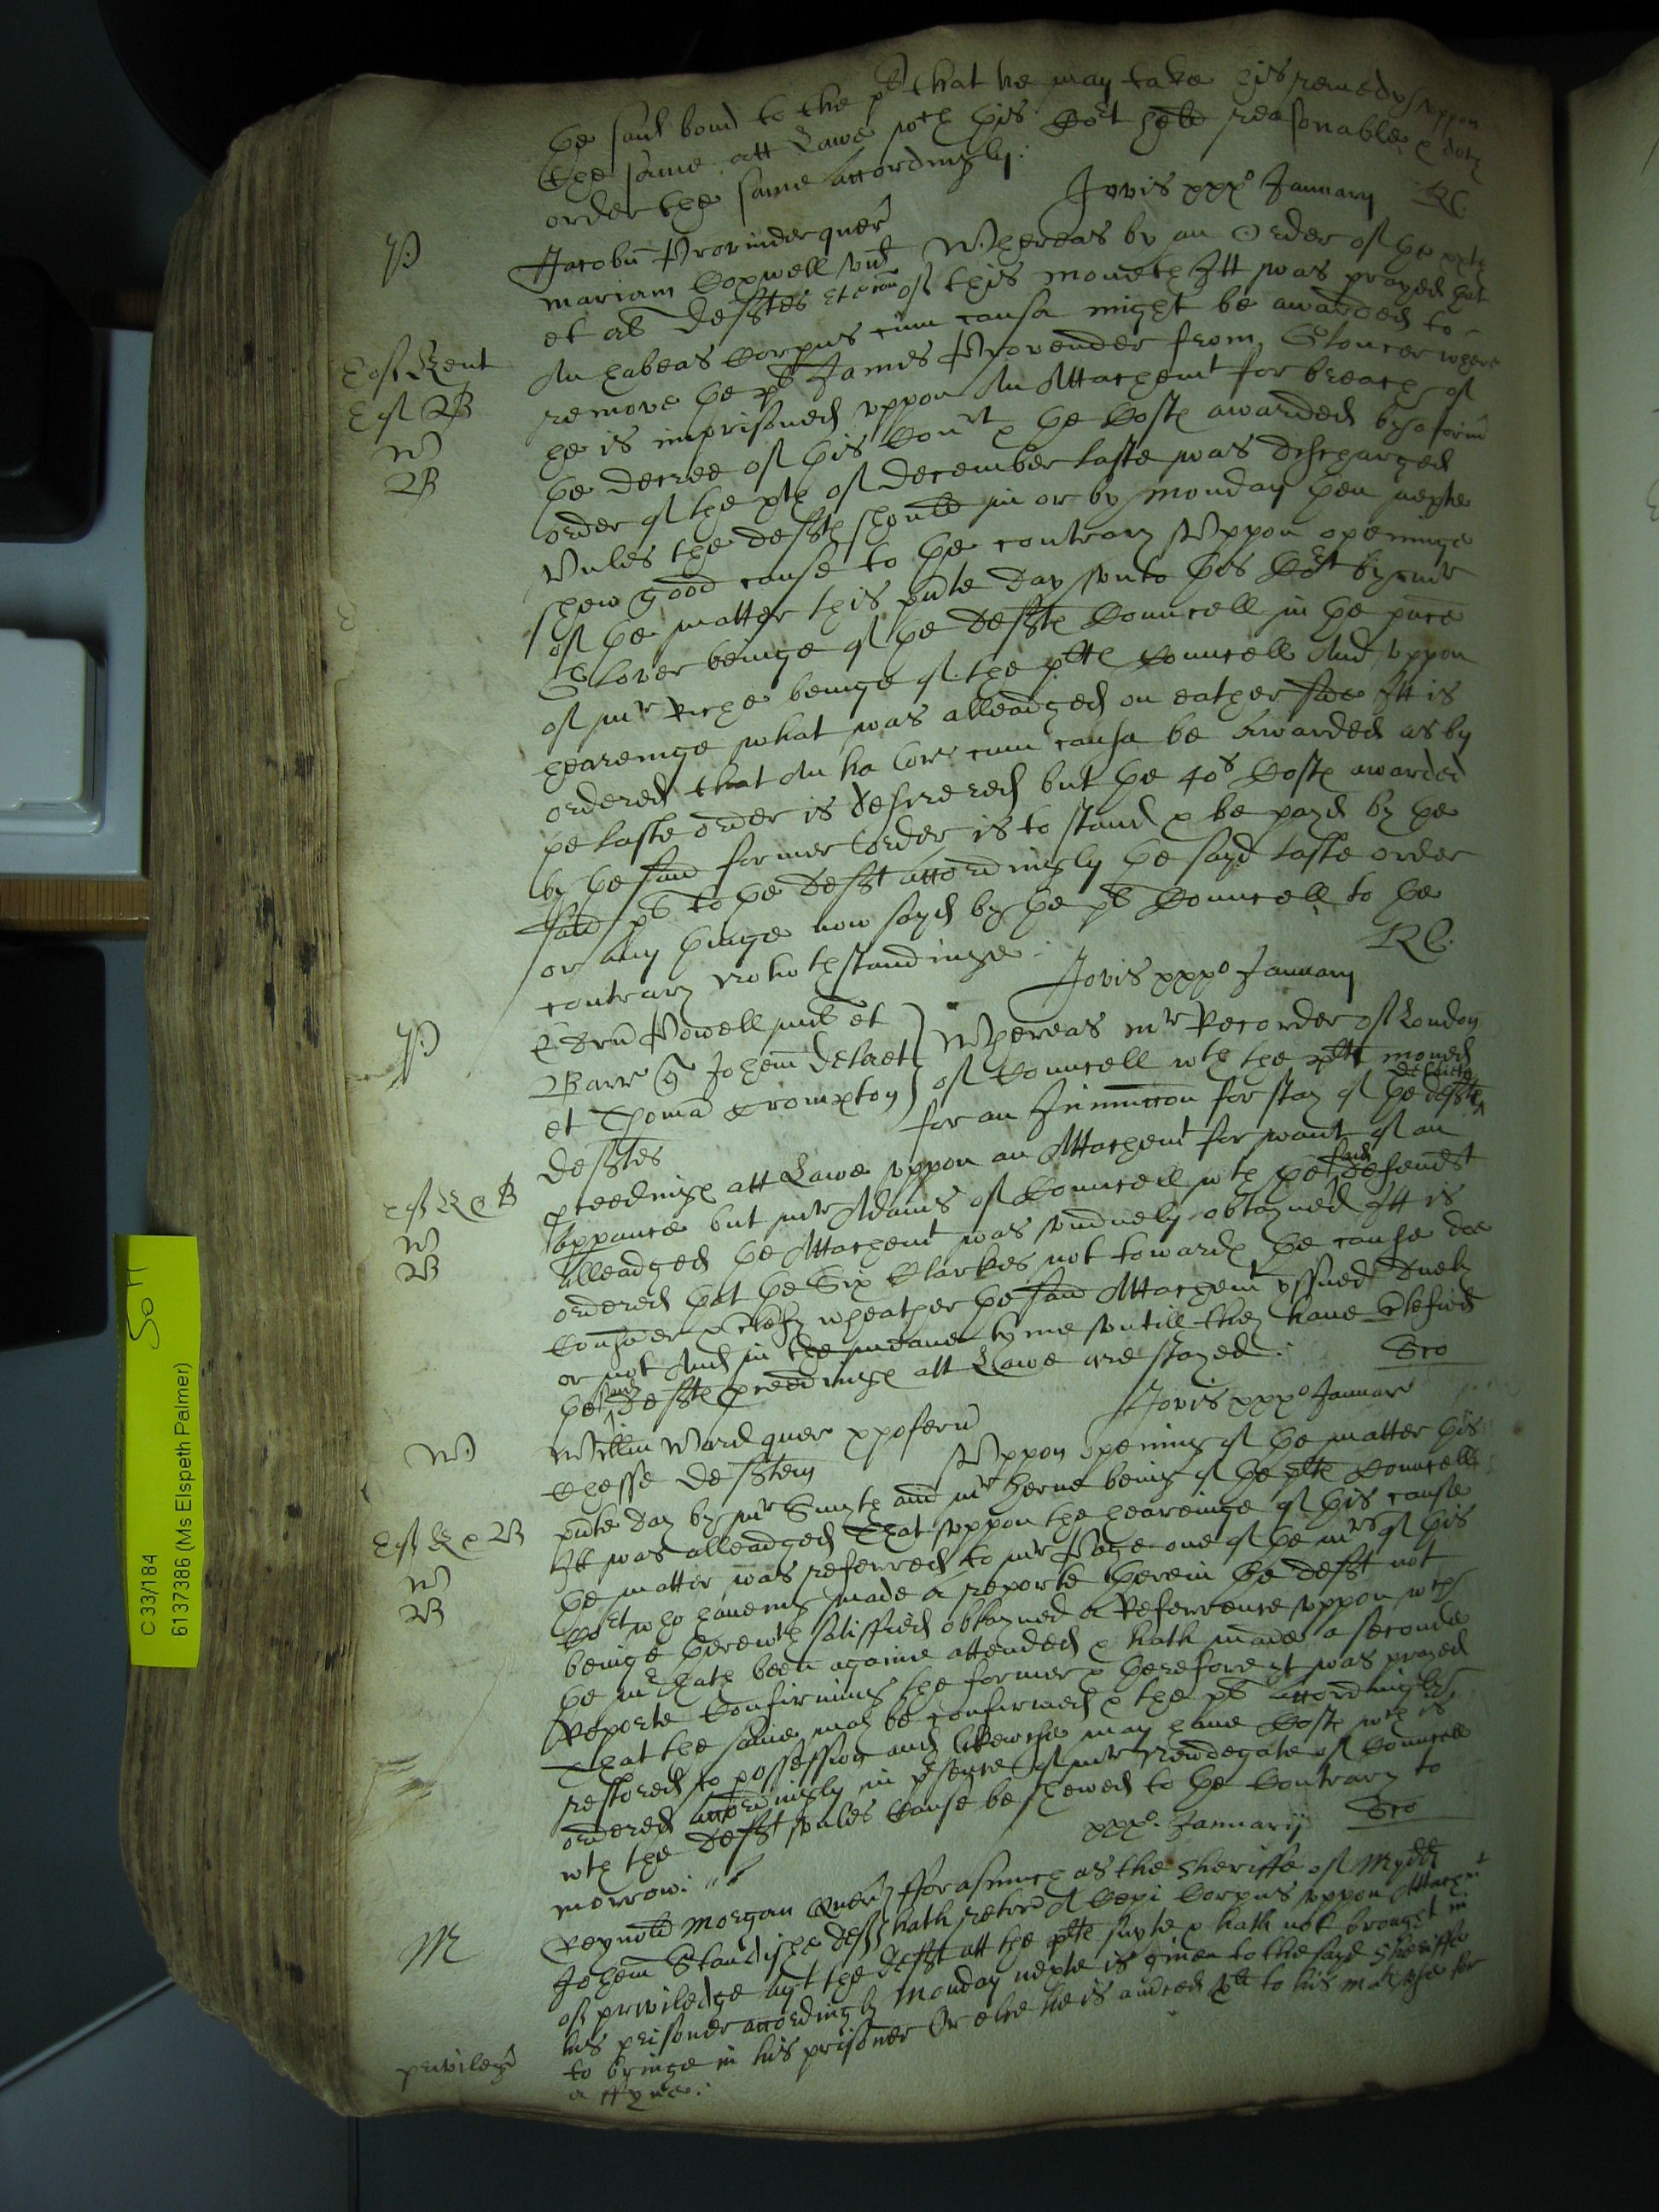 the said bond to the pl that he may take his remedy uppon
the same att Lawe wch this Cort held reasonable & doth
order the same accordingly:
Jovis xxxo January RC
P:
Jacobu Provinder quer
Mariam Coxwell vid
et al defftes
Whereas by an Order of the xxth
of this moneth Itt was prayed that
An habeas Corpus cum causa might be awarded to
Exs Kent
remove the pl James Provender from Gloucer where
Exs
he is imprisoned uppon An Attachemt for breach of
W
the decree of this Court & the Costs awarded by a former
B
order of the xth of December laste was discharged
Unles the defft should in or by Monday then nexte
shew good cause to the contrary Uppon openinge
of the matter this pnte day unto this Cort by mr
Glover beinge of the deffts Councell in the pnce
of mr Riche beinge of the plts Councell And uppon
heareinge what was alleadged on eather side Itt is
ordered that An ha Cor cum causa be Awarded as by
the laste order is desired but the 40s Costs awarded
by the said former Order is to stand & be payd by the
said pl to the defft accordingly the sayd laste order
or any thinge now sayd by the pl Councell to the
contrary notwthstandinge: RC.
Jovis xxxo January
P:
Edru Powell mil et
Barr q Johem
et Thoma Crompton
defftes
Whereas mr Recorder of London
of Councell wth the plts moved
for an Iniunccon for stay of the deffts
pceedings att Lawe uppon an Attachemt for want of an
Exs K & B
appance but mr Adams of Councell wth the said defendt
W
alleadged the Attachemt was unduely obtayned Itt is
B
ordered that the Six Clarkes not towards the cause doe
Consider & certefy wheather the said Attachemt yssued duely
or not And in the meane tyme untill they have certefied
the said deffts pceedings att Lawe are stayed: Sco
Jovis xxxo Januar
W)
Willm Ward quer xpoferu
defften
Uppon opening of the matter this
pnte day by mr Smyth and mr Herne being of the plts Councell
Exs K & B
Itt was alleadged That uppon the heareinge of this cause
W
the matter was referred to mr Page one of the mrs of this
B
Cort who haveing made a reporte therein the defft not
beinge therewth satisfied obtayned a Referrence uppon wch
the mr hath been againe attended & hath made a seconde
Reporte Confirming the former & therefore yt was prayed
That the same may be confirmed & the pl accordingly
restored to possession and likewise may have Costs wch is
ordered accordingly in psence of mr Newdegate of Councell
wth the defft unles Cause be shewed to the Contrary to
morrow: Sco
xxxo. Januarij
M
Reynold Morgan Quer
Johem Standishe deff
Fforasmuch as the Sheriffe of Mydd
hath retord A Cepi Corpus uppon Attachmt
of priviledge agt the defft att the plts suyte & hath not brought in
his prisoner accordingly Monday nexte is given to the sayd Sheriffe
to bringe in his prisoner Or else he is to his mats use for
privileg
a ffyne:
C 33/184
6137386 (Ms Elspeth Palmer)